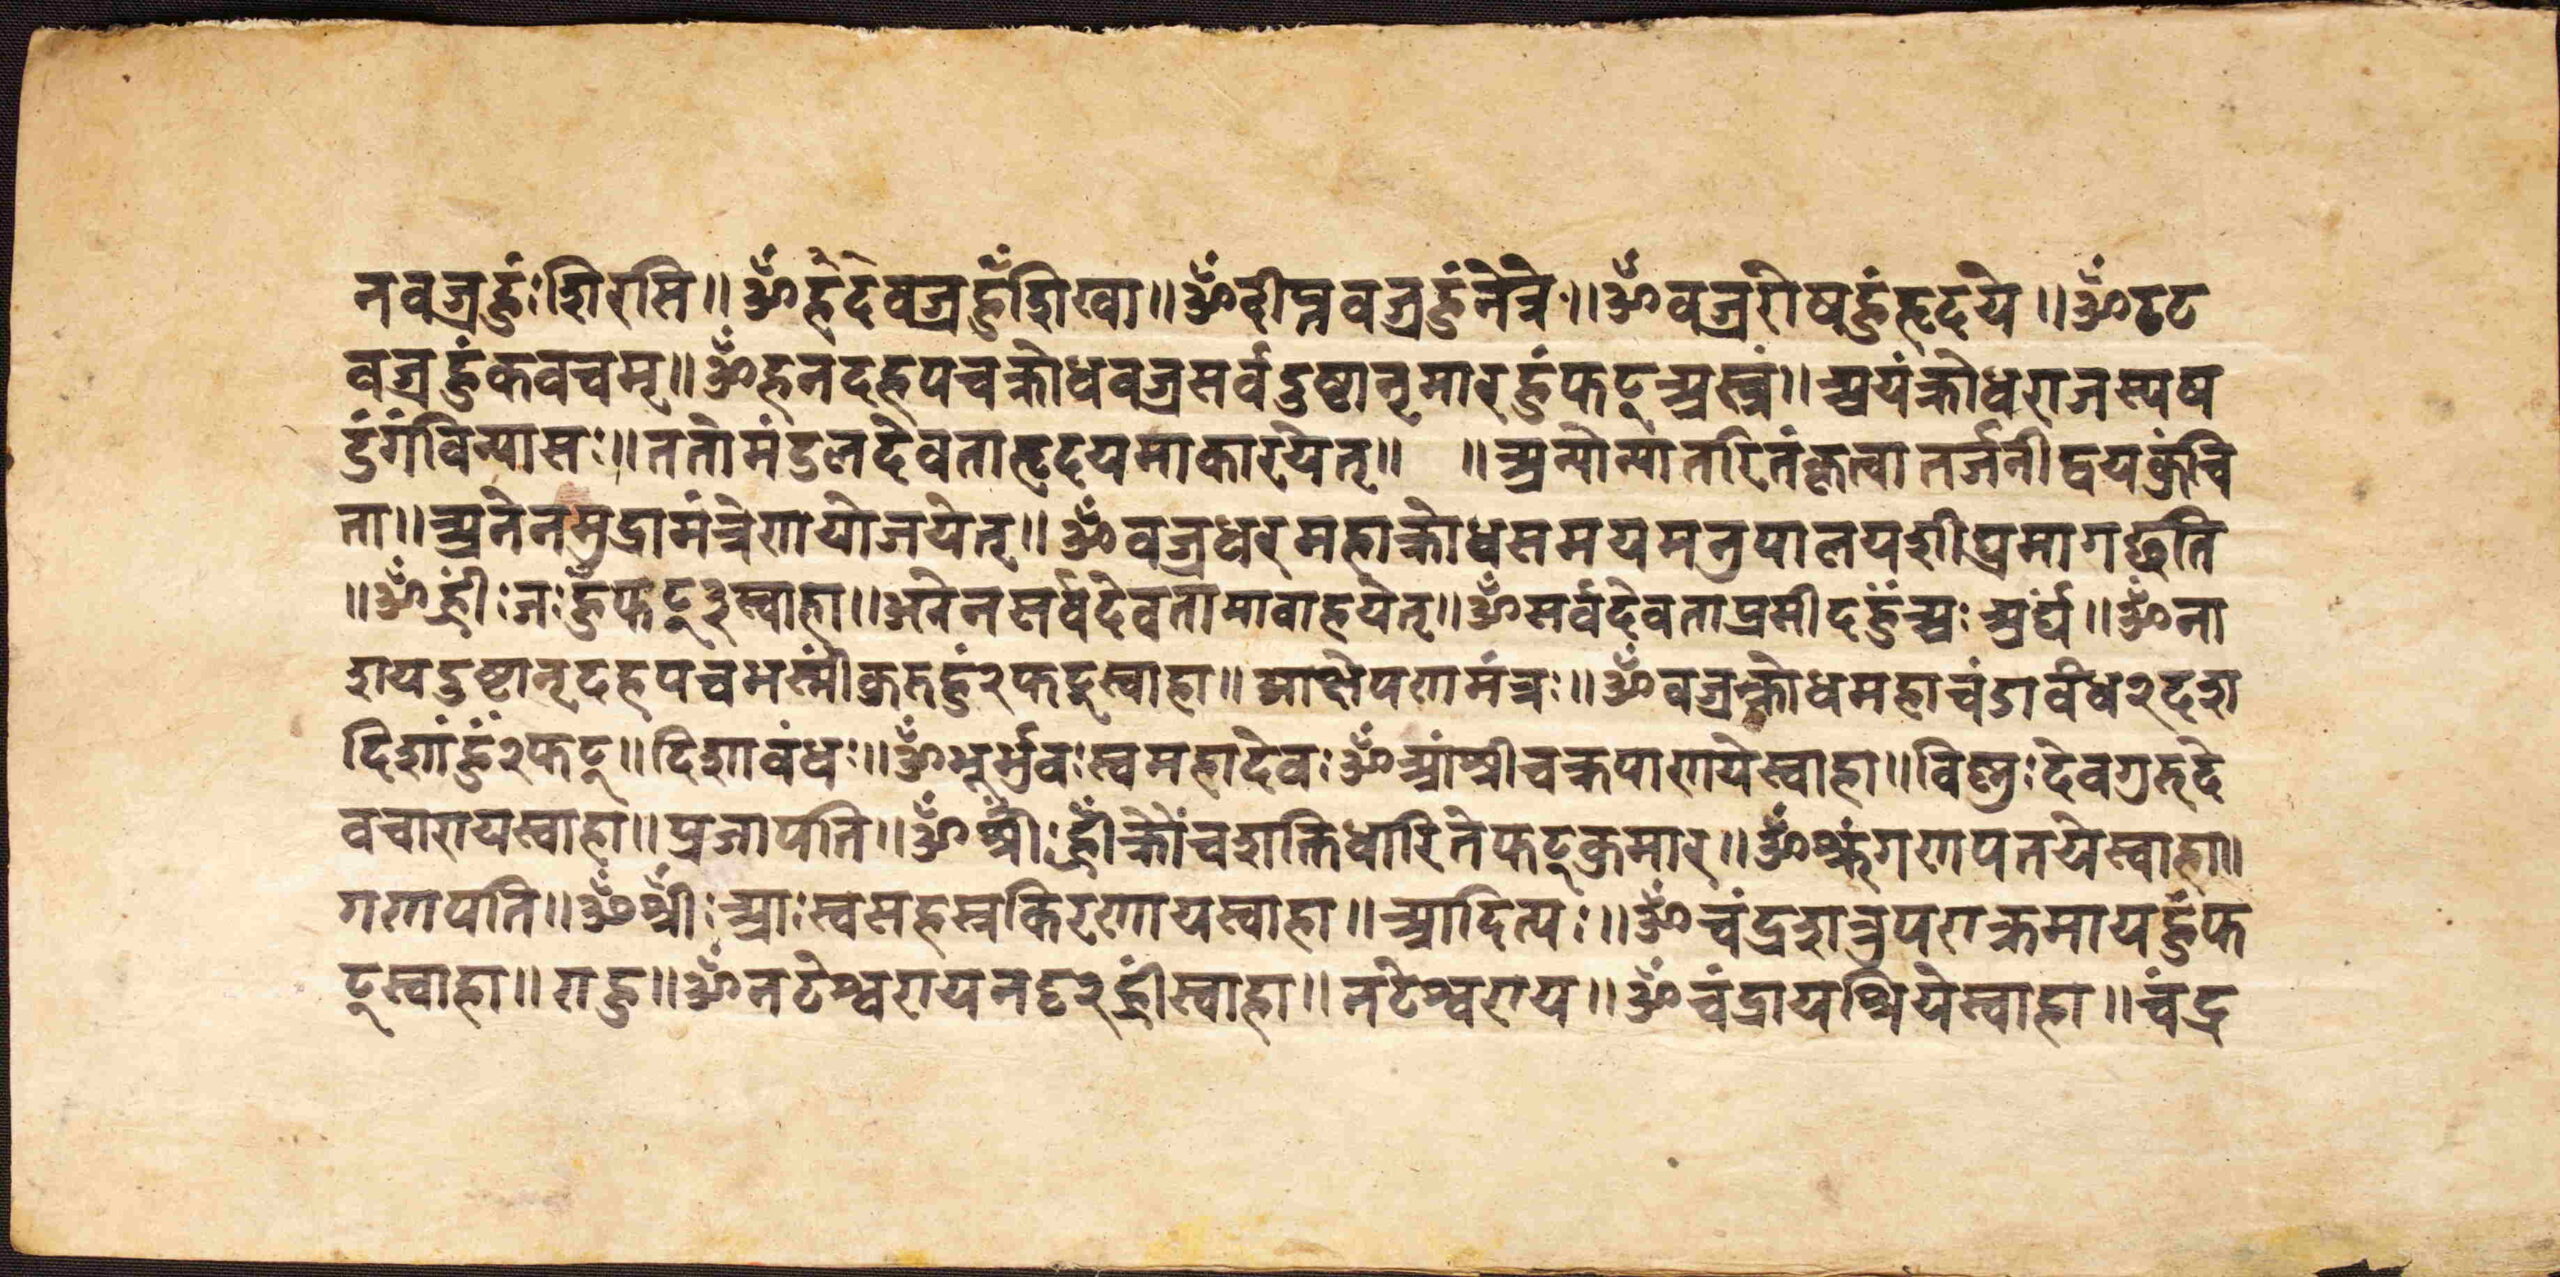 नवज्रहुंःशिरसि॥ॐहँदेवज्रहुँशिखा॥ॐदीप्तवज्रहुंनेत्रे॥ॐवज्ररोषहुंहृदये॥ॐटट
वज्रहुंकवचम्॥ॐहनदहपचक्रोधवज्रसर्वदुष्टान्मारहुंफट्अस्त्रं॥अयंक्रोधराजस्यष
डंगंविन्यासः॥ततोमंडलदेवताहृदयमाकारयेत्॥ ॥अन्योन्यांतरितंकृत्वातर्जनीद्वयकुंचि
ता॥अनेनमुद्रामंत्रेणायोजयेत्॥ॐवज्रधरमहाक्रोधसमयमनुपालयशीघ्रमागछति
॥ॐह्रींःजःहुँफट्३स्वाहा॥अनेनसर्वदेवतामावाहयेत्॥ॐसर्वदेवताप्रसीदहुंअःअर्घं॥ॐना
शयदुष्टान्दहपचभस्मींकुरुहुं२फट्स्वाहा॥आक्षेपणमंत्रः॥ॐवज्रक्रोधमहाचंडबंध२दश
दिशांहुंं२फट्॥दिशाबंधः॥ॐभूर्भुवःस्वमहादेवःॐआंश्रीचक्रपाणयेस्वाहा॥विष्णुःदेवगुरुदे
वचारायस्वाहा॥प्रजापति॥ॐश्रीँःह्रीँक्रौंचशक्तिधारितेफट्कुमार॥ॐगणपतयेस्वाहा॥
गणपति॥ॐश्रीँःआःस्वसहस्रकिरणायस्वाहा॥आदित्यः॥ॐचंद्रशत्रुपराक्रमायहुंफ
ट्स्वाहा॥राहु॥ॐनटेश्वरायनट्ट२ह्रींस्वाहा॥नटेश्वराय॥ॐचंद्रायश्रियेस्वाहा॥चंद्र